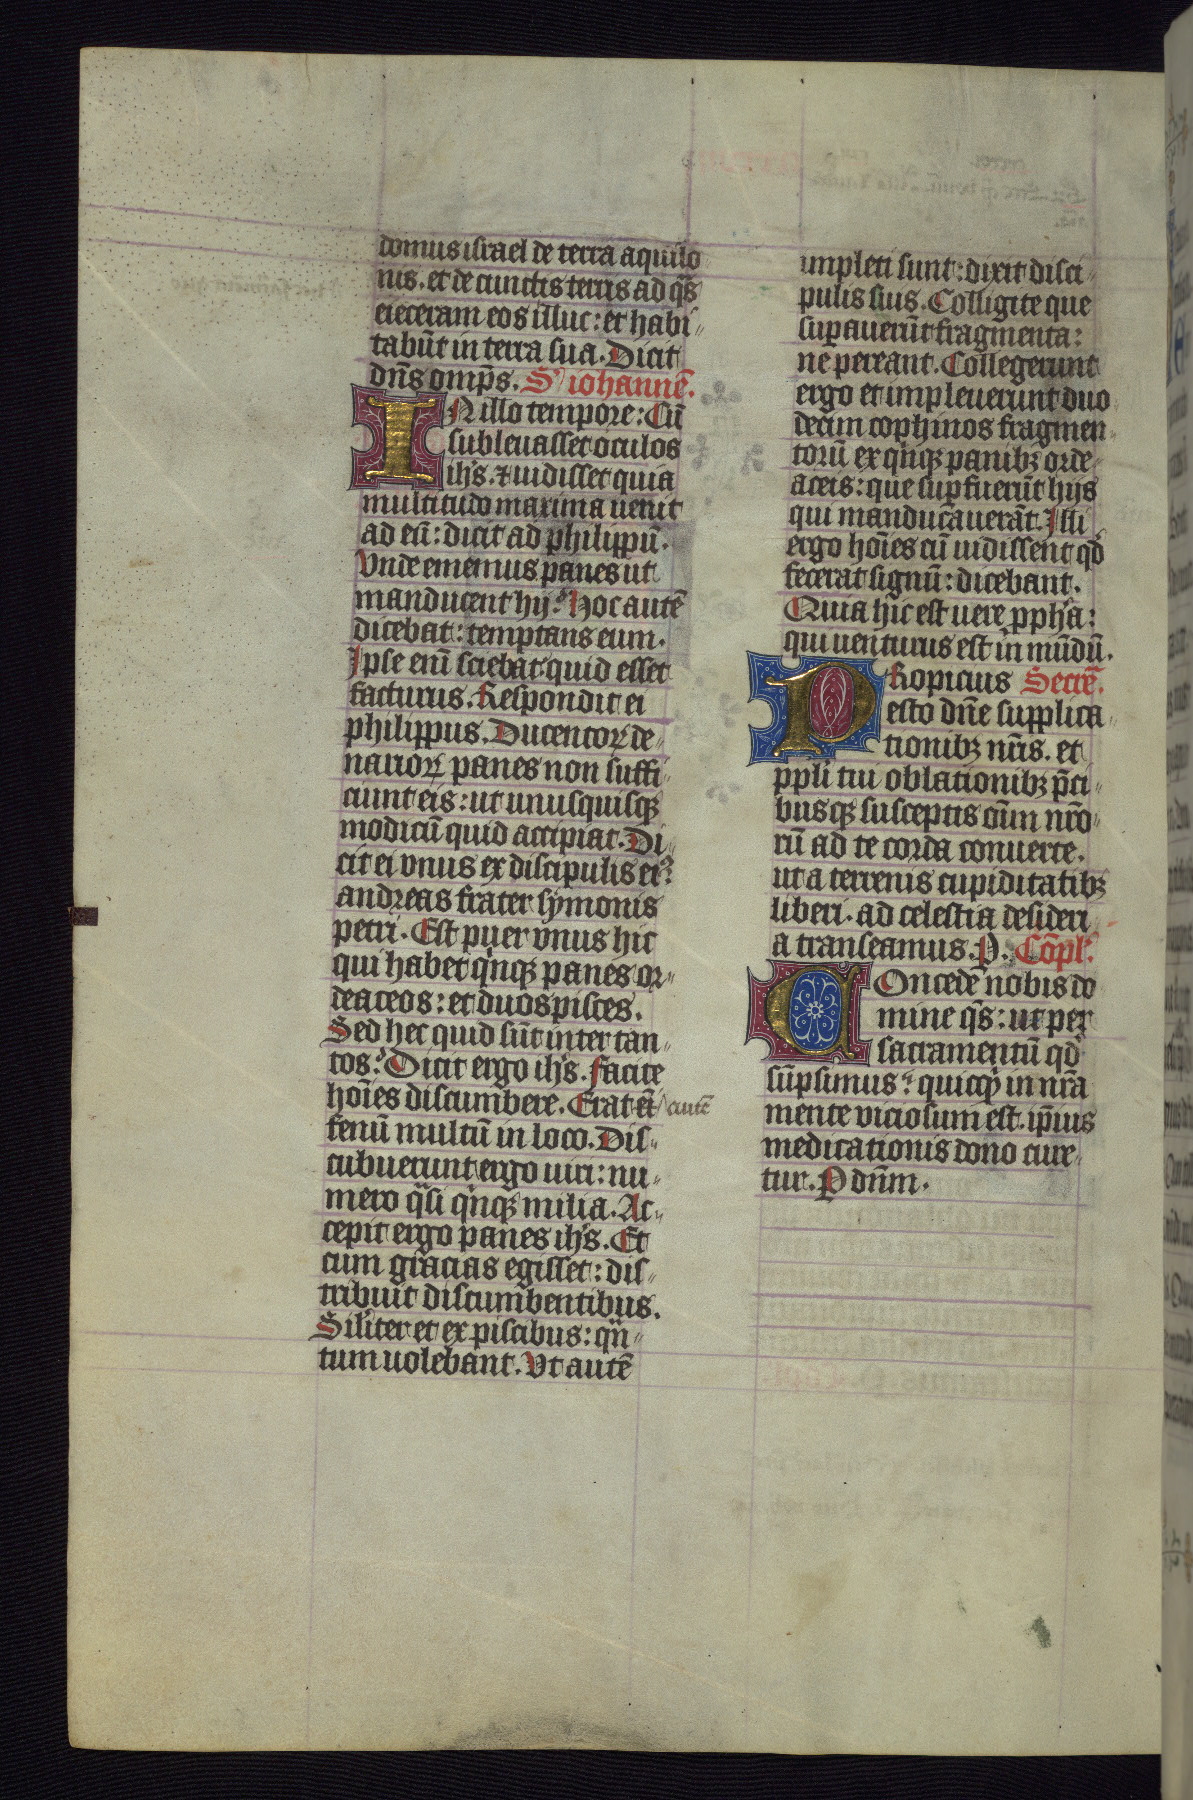 domus israel de terra aquilo
nis. et de cunctis terris ad q̃s
eieceram eos illuc: et habi
tabūt in terra sua. Dicit
dn̄s omp̄s. S' iohannē.
IN illo tempore: Cū
subleuasset oculos
ih̄s. ⁊ uidisset quia
multitudo maxima uenit
ad eū: dicit ad philippū.
Vnde ememus panes ut
manducent hij? Hoc autē
dicebat: temptans eum.
Ipse enī sciebat quid esset
facturus. Respondit ei
philippus. Ducentoꝝ de
narioꝝ panes non suffi
ciunt eis: ut unusquisqꝫ
modicū quid accipiat. Di
cit ei vnus ex discipulis eiꝰ:
andreas frater symonis
petri. Est puer vnus hic
qui habet q'nqꝫ panes or
deaceos: et duos pisces.
Sed hec quid sūt inter tan
tos? Dicit ergo ih̄s. facite
hoīes discumbere. Erat eīt autē
fenū multū in loco. Dis
cubuerunt ergo uiri: nu
mero q̃si q'nqꝫ milia. Ac
cepit ergo panes ih̄s. Et
cum gracias egisset: dis
tribuit discumbentibus.
Sil'iter et ex piscibus: q̃n
tum uolebant. Vt autē
impleti sunt: dixit disci
pulis suis. Colligite que
suꝑauerūt fragmenta:
ne pereant. Collegerunt
ergo et impleuerunt duo
decim cophinos fragmen
torū ex q'nqꝫ panibꝫ orde
aceis: que suꝑfuerūt hijs
qui manducauerāt. Illi
ergo hoīes cū uidissent qd̄
fecerat signū: dicebant.
Quia hic est uere ꝓph̄a:
qui uenturus est in mūdū.
PRopicius Secrē.
esto dn̄e supplica
tionibꝫ nr̄is. et
pp̄li tui oblationibꝫ p̄ci
busqꝫ susceptis oīm nr̄o
rū ad te corda conuerte.
ut a terrenis cupiditatibꝫ
liberi. ad celestia desideri
a transeamus. P. Cōpl'.
COncede nobis do
mine q̄s: ut per
sacramentū qd̄
sūpsimus: quicq̇ in nr̄a
mente viciosum est. ip̄ius
medicationis dono cure
tur. P dn̄m.